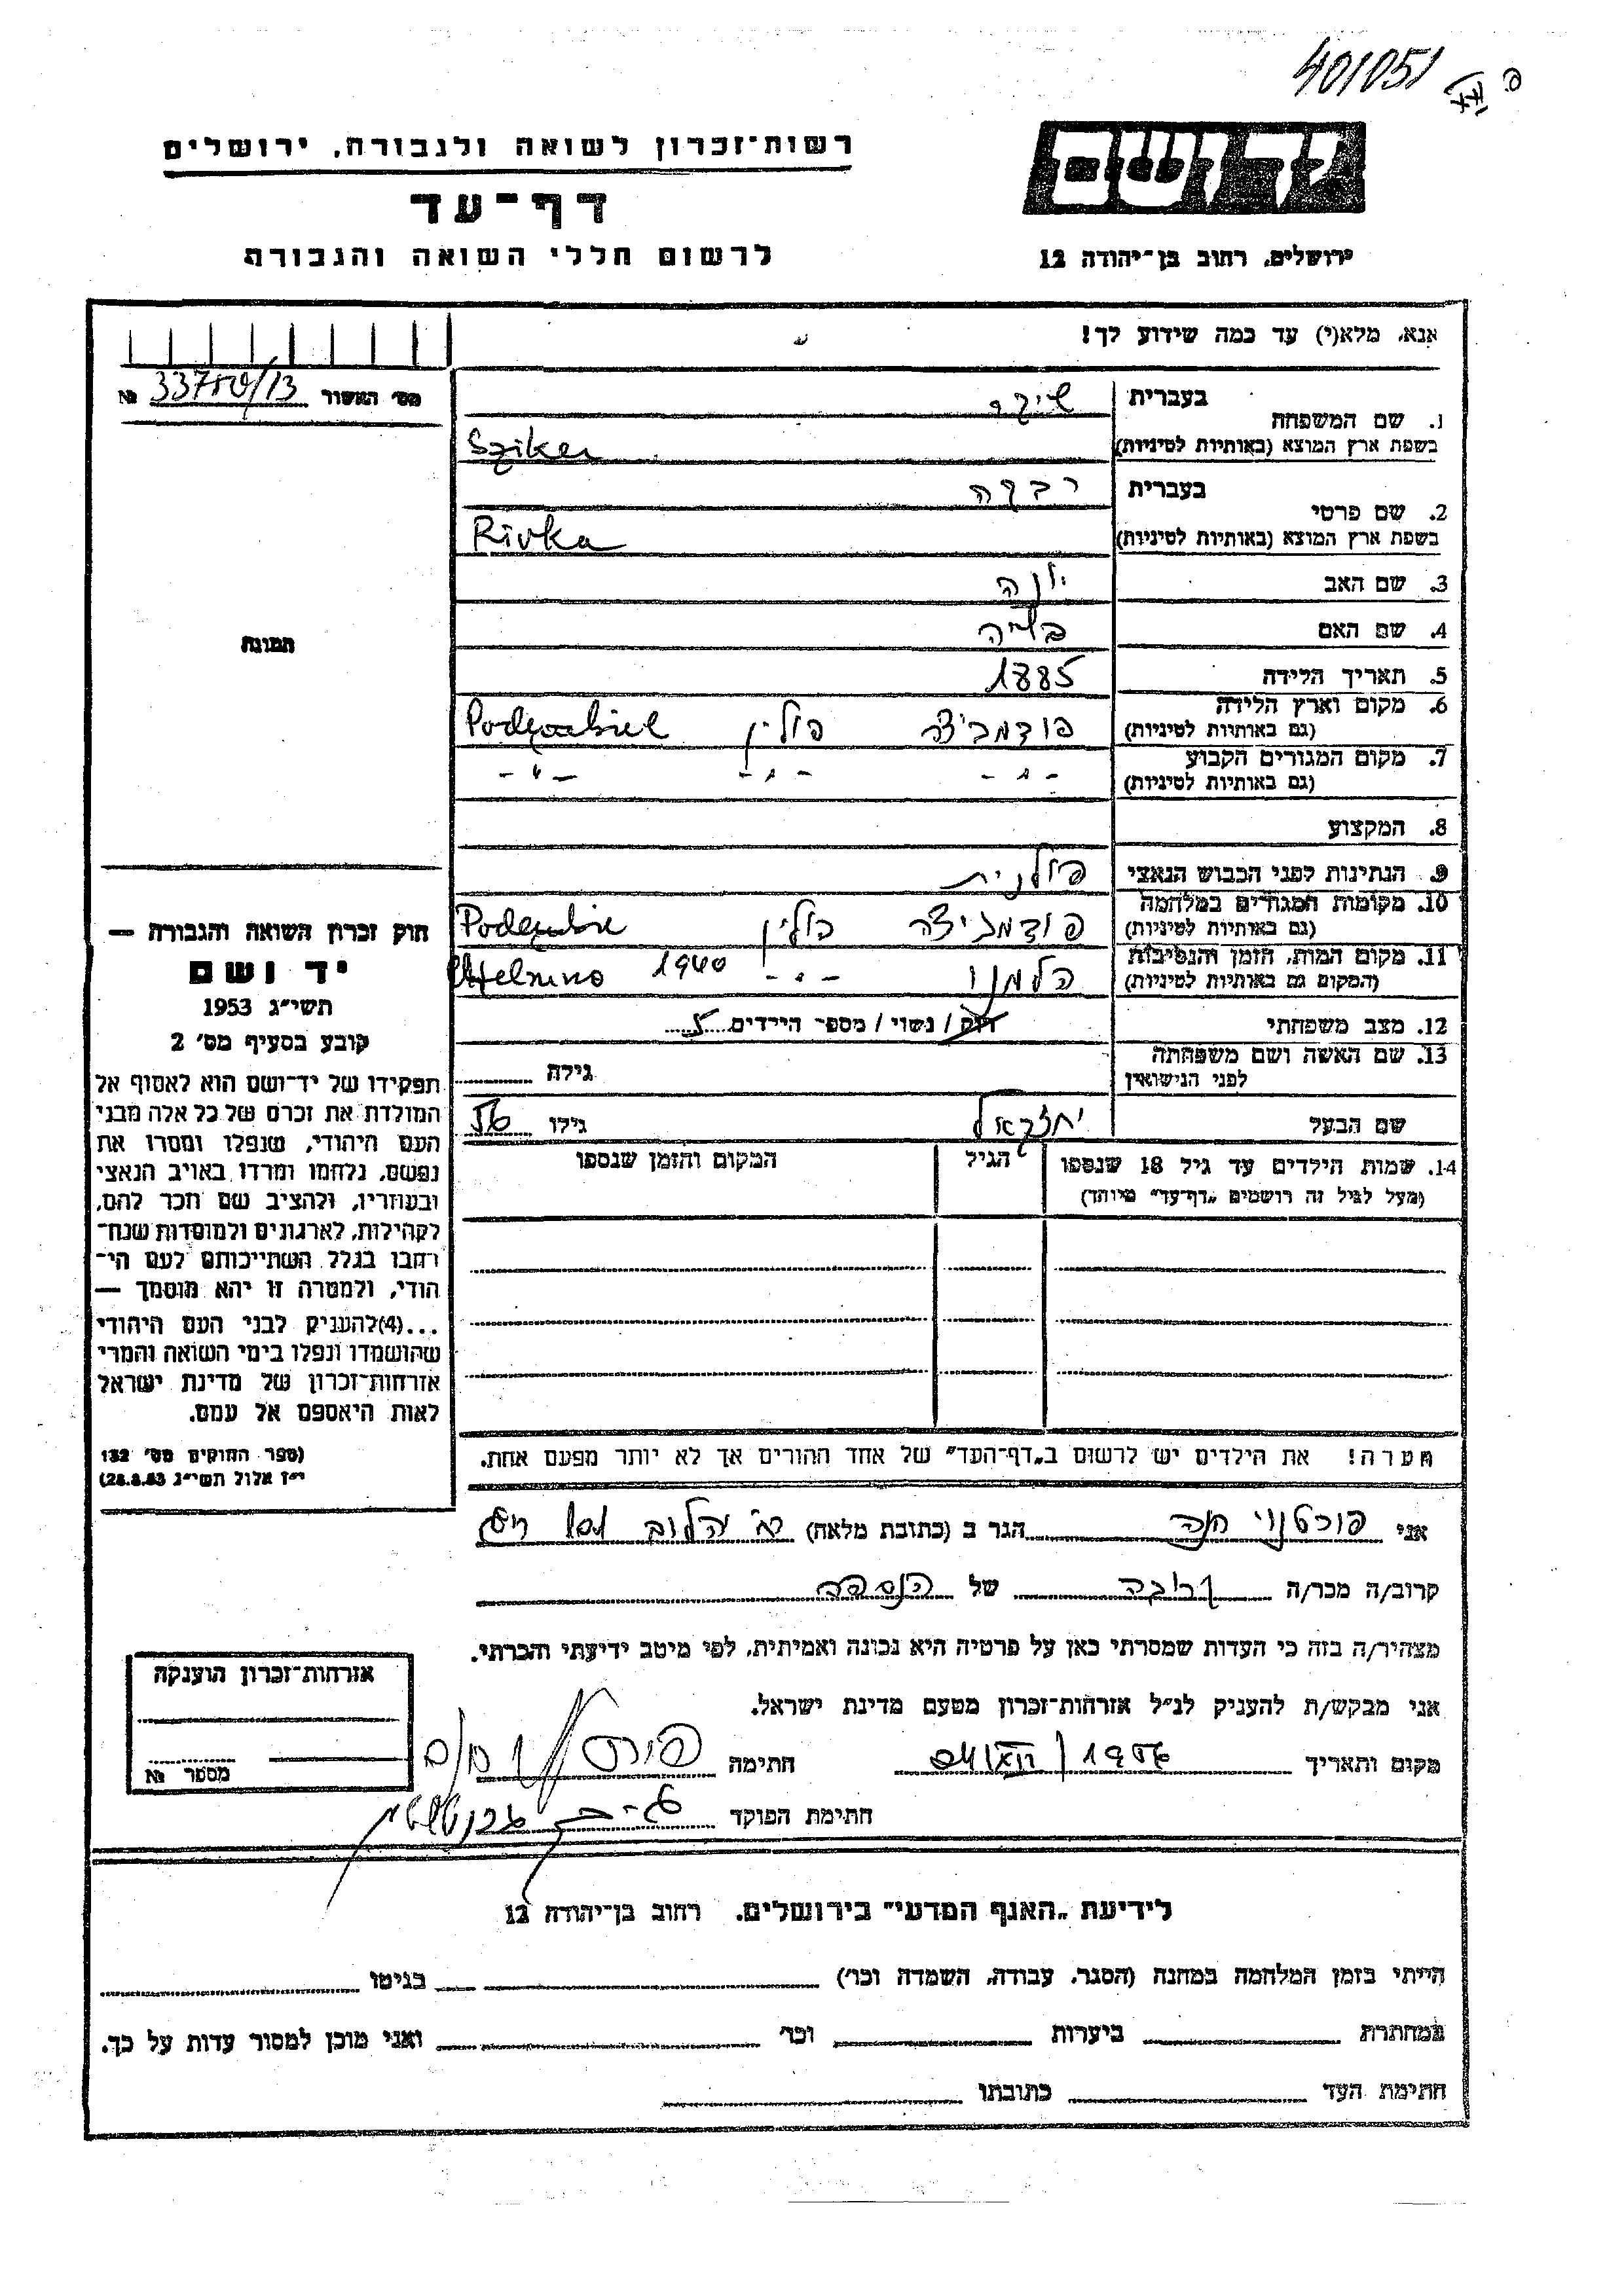 401051
רשות־זכרון לשואה ולגבורה, ירושלים
דף־עד
לרשום חללי השואה והגבורה
יד ושם
ירושלים, רחוב בן־יהודה 12
אנא, מלא(י) עד כמה שידוע לך!
מס׳ האשור № 33750/13
1. שם המשפחה
בעברית שיקר
בשפת ארץ המוצא (באותיות לטיניות) Sziker
2. שם פרטי
בעברית רבקה
בשפת ארץ המוצא (באותיות לטיניות) Rivka
3. שם האב יונה
4. שם האם
5. תאריך הלידה 1885
6. מקום וארץ הלידה
(גם באותיות לטיניות) פודמביצה פולין
7. מקום המגורים הקבוע
(גם באותיות לטיניות) -״- -״- -״-
8. המקצוע
9. הנתינות לפני הכבוש הנאצי פולנית
10. מקומות המגורים במלחמה
(גם באותיות לטיניות) פודמביצה פולין
11. מקום המות, הזמן והנסיבות
(המקום גם באותיות לטיניות) הלמנו -״- 1940 Chelmno
12. מצב משפחתי רוק/ נשוי / מספר הילדים 5
13. שם האשה ושם משפחתה
לפני הנישואין
גילה
שם הבעל יחזקאל גילו 56
14. שמות הילדים עד גיל 18 שנספו
(מעל לגיל זה רושמים „דף־עד״ מיוחד)
הגיל
המקום והזמן שנספו
תמונה
חוק זכרון השואה והגבורה —
יד ושם
תשי״ג 1953
קובע בסעיף מס׳ 2
תפקידו של יד־ושם הוא לאסוף אל
המולדת את זכרם של כל אלה מבני
העם היהודי, שנפלו ומסרו את
נפשם, נלחמו ומרדו באויב הנאצי
ובעוזריו, ולהציב שם וזכר להם,
לקהילות, לארגונים ולמוסדות שנח־
רבו בגלל השתייכותם לעם הי־
הודי, ולמטרה זו יהא מוסמך —
...(4)להעניק לבני העם היהודי
שהושמדו ונפלו בימי השואה והמרי
אזרחות־זכרון של מדינת ישראל
לאות היאספם אל עמם.
(ספר החוקים מס׳ 132
י״ז אלול תשי״ג 28.8.53)
הערה! את הילדים יש לרשום ב„דף־העד״ של אחד ההורים אך לא יותר מפעם אחת.
אני חנה הגר ב (כתובת מלאה)
קרוב/ה מכר/ה קרובה של הנספה
מצהיר/ה בזה כי העדות שמסרתי כאן על פרטיה היא נכונה ואמיתית, לפי מיטב ידיעתי והכרתי.
אני מבקש/ת להעניק לנ״ל אזרחות־זכרון מטעם מדינת ישראל.
מקום ותאריך 1956 חתימה
חתימת הפוקד
אזרחות־זכרון הוענקה
מספר №
לידיעת „האגף המדעי״ בירושלים. רחוב בן־יהודה 12
הייתי בזמן המלחמה במחנה (הסגר, עבודה, השמדה וכו׳) בגיטו
במחתרת ביערות וכו׳ ואני מוכן למסור עדות על כך.
חתימת העד כתובתו